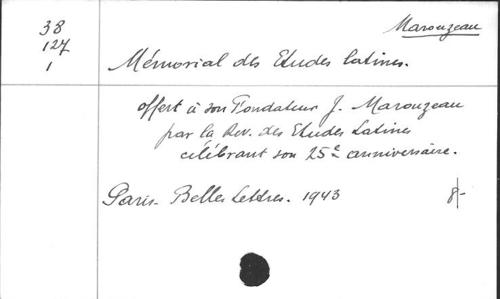 38
127
1
Marouzeau
Mémorial des Etudes latines.
offert à son Fondateur J. Marouzeau
par la Rev. des Etudes Latines
célébrant son 25e anniversaire.
Paris. Belles Lettres. 1943
8/-